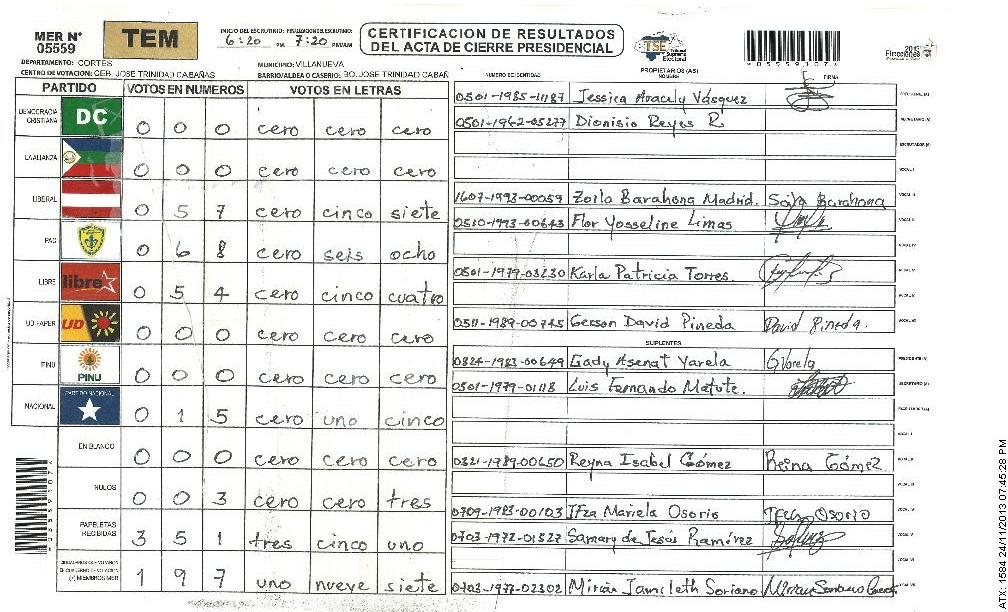 MER N° 05559
TEM
INICIO DEL ESCRUTINIO: 6:20 PM FINALIZACION DEL ESCRUTINIO: 7:20 PM/AM
CERTIFICACION DE RESULTADOS
DEL ACTA DE CIERRE PRESIDENCIAL
TSE Tribunal Supremo Electoral
*05559107*
2013 Elecciones
DEPARTAMENTO: CORTES
MUNICIPIO: VILLANUEVA
CENTRO DE VOTACION: CEB. JOSE TRINIDAD CABAÑAS
BARRIO/ALDEA O CASERIO: BO. JOSE TRINIDAD CABAÑ
NUMERO DE IDENTIDAD PROPIETARIOS (AS) NOMBRE FIRMA
PARTIDO VOTOS EN NUMEROS VOTOS EN LETRAS
DEMOCRACIA CRISTIANA DC 0 0 0 cero cero cero
LA ALIANZA 0 0 0 cero cero cero
LIBERAL 0 5 7 cero cinco siete
PAC 0 6 8 cero seis ocho
LIBRE libre 0 5 4 cero cinco cuatro
UD-FAPER UD 0 0 0 cero cero cero
PINU PINU 0 0 0 cero cero cero
NACIONAL PARTIDO NACIONAL 0 1 5 cero uno cinco
EN BLANCO 0 0 0 cero cero cero
NULOS 0 0 3 cero cero tres
PAPELETAS RECIBIDAS 3 5 1 tres cinco uno
CIUDADANOS QUE VOTARON EN CUADERNO DE VOTACION (+) MIEMBROS MER 1 9 7 uno nueve siete
0501-1985-11187 Jessica Aracely Vásquez PRESIDENTE (A)
0501-1962-05277 Dionisio Reyes R. SECRETARIO (A)
ESCRUTADOR (A)
VOCAL I
1607-1993-00059 Zoila Barahona Madrid. Soila Barahona VOCAL II
0510-1993-00643 Flor Yosseline Limas VOCAL III
VOCAL IV
0501-1979-03230 Karla Patricia Torres. VOCAL V
VOCAL VI
0511-1989-00745 Gerson David Pineda David Pineda. VOCAL VII
SUPLENTES
0824-1983-00649 Gady Asenat Varela G Varela PRESIDENTE (A)
0501-1979-01118 Luis Fernando Matute. SECRETARIO (A)
ESCRUTADOR (A)
VOCAL I
0321-1989-00650 Reyna Isabel Gómez Reina Gómez VOCAL II
VOCAL III
0709-1983-00103 Ifza Mariela Osorio Osorio VOCAL IV
0703-1972-01527 Samary de Jesús Ramírez VOCAL V
VOCAL VI
0703-1977-02302 Mirian Jamileth Soriano Mirian Soriano VOCAL VII
*05559107*
ATX-1584 24/11/2013 07:45:28 PM